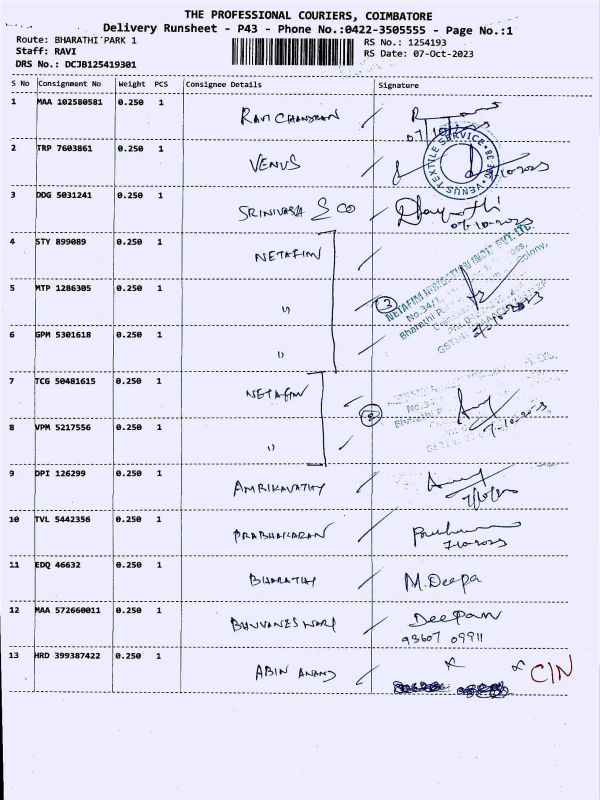 THE PROFESSIONAL COURIERS, COIMBATORE
Delivery Runsheet - P43 - Phone No.:0422-3505555 - Page No.:1
Route: BHARATHI PARK 1
RS No.: 1254193
Staff: RAVI
RS Date: 07-Oct-2023
DRS No.: DCJB125419301
S No Consignment No Weight PCS Consignee Details Signature
1 MAA 102580581 0.250 1 RAVI CHANDRAN
07/10/
2 TRP 7603861 0.250 1 VENUS
VENUS TEXTILE SERVICE
3 DDG 5031241 0.250 1 SRINIVASA & CO
07-10-2023
4 STY 899089 0.250 1 NETAFIM
NETAFIM IRRIGATION INDIA PVT. LTD.
5 MTP 1286305 0.250 1 〃 3
No.34/1
Bharathi P
GSTIN
7-10-2023
6 GPM 5301618 0.250 1 〃
7 TCG 50481615 0.250 1 NETAFIM
2
Bharathi P
7-10-2023
8 VPM 5217556 0.250 1 〃
9 DPI 126299 0.250 1 AMRIKAVATHY
7/10/23
10 TVL 5442356 0.250 1 PRABHAKARAN
7-10-2023
11 EDQ 46632 0.250 1 BHARATHY M.Deepa
12 MAA 572660011 0.250 1 BHUVANESWARI Deepan
93607 09911
13 HRD 399387422 0.250 1 ABIN ANAND
C/N